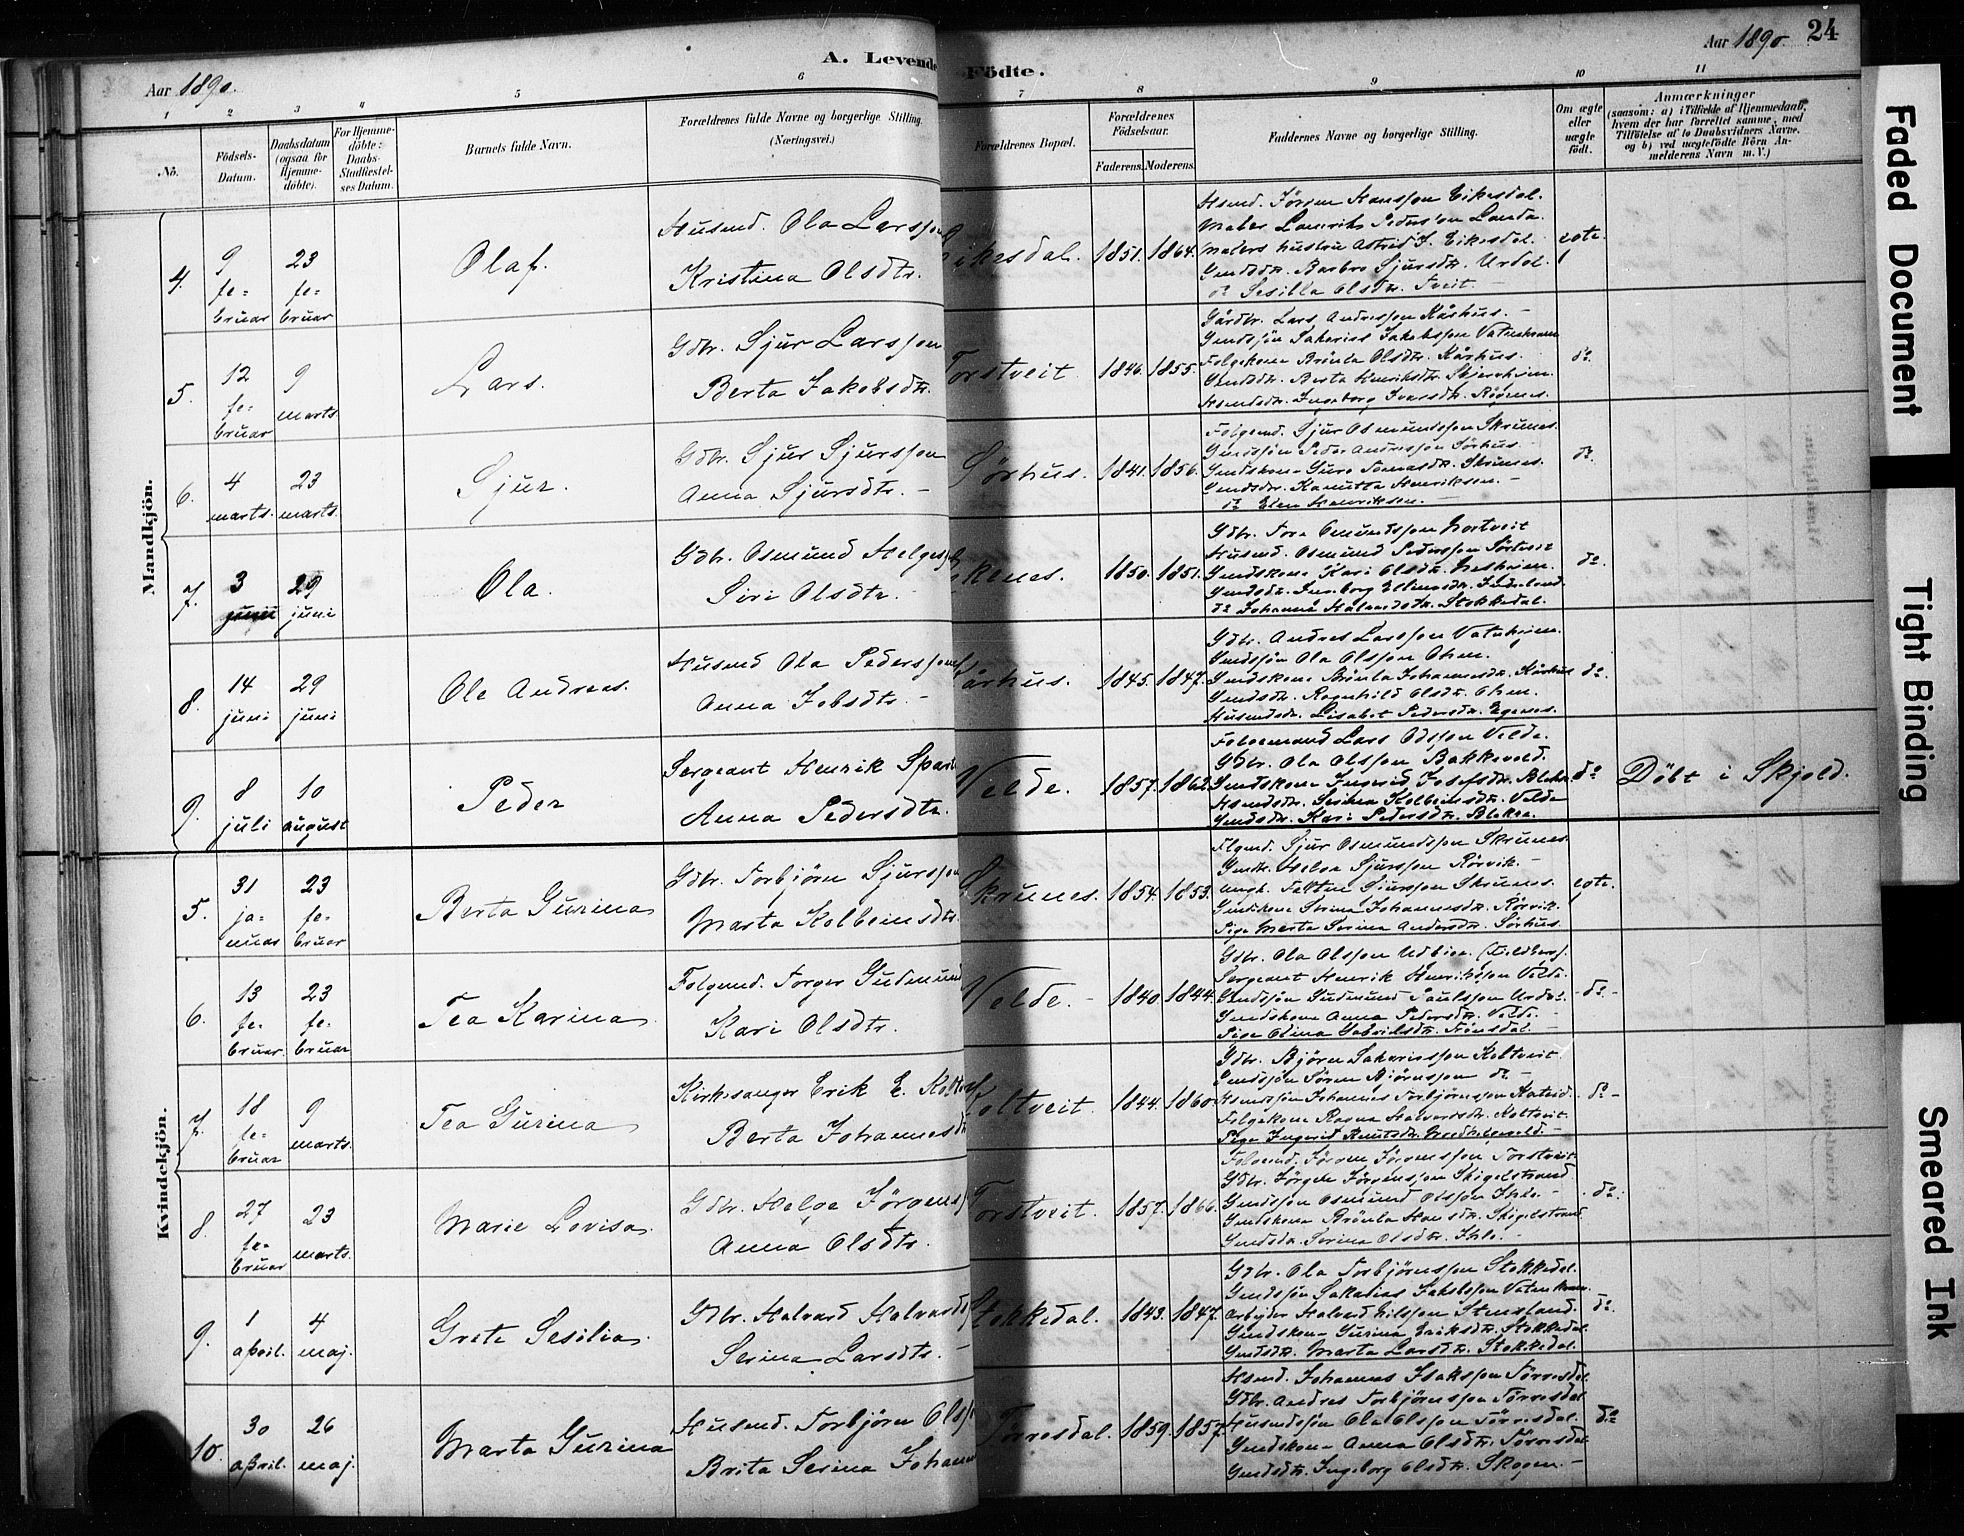 Aar 1890.
A. Levende Födte.
Aar 1890. 24
1 2 3 4 5 6 7 8 9 10 11
No.
Födsels-Datum.
Daabsdatum (ogsaa for Hjemmedöbte).
For Hjemmedöbte: Daabs-Stadfæstelses Datum.
Barnets fulde Navn.
Forældrenes fulde Navne og borgerlige Stilling. (Næringsvei.)
Forældrenes Bopæl.
Forældrenes Födselsaar.
Faderens. Moderens.
Faddernes Navne og borgerlige Stilling.
Om ægte eller uægte födt.
Anmærkninger
(saasom: a) i Tilfælde af Hjemmedaab, hvem der har forrettet samme, med Tilföielse af to Daabsvidners Navne. og b) ved uægtefödte Börn Anmelderens Navn m. V.)
Mandkjön.
4. 9 februar 23 februar Olaf.
Husmd. Ola Larsson
Kristina Olsdtr.
Eikesdal. 1851. 1864.
Husmd. Jörgen Hansson Eikesdal.
Maler Lauritz Pedersson Landa.
Malers hustru Astrid J. Eikesdal.
Gmdsdtr. Barbro Sjursdtr. Urdal.
do Sesilla Olsdtr. Tveit
egte.
5. 12 februar 9 marts. Lars.
Gdbr. Sjur Larsson
Berta Jakobsdtr.
Torstveit 1846. 1855.
Gårdbr. Lars Andersson Kårhus.
Gmdssön Sakarias Jakobsson
Folgekone Brönla Olsdtr. Kårhus.
Gmdsdtr. Berta Henriksdtr. Skjervheim.
Hsmdsdtr. Ingeborg Ivarsdtr. Röönes.
do.
6. 4 marts. 23 marts. Sjur.
Gdbr. Sjur Sjursson
Anna Sjursdtr.
Sörhus. 1841. 1856.
Folgemd. Sjur Osmundsson Skrunes.
Gmdssön Peder Andersson Sörhus.
Gmdskone Guro Skrunes.
Gmdsdtr. Kanutta Henriksen.
do Elen Henriksen.
do.
7. 3 juni 29 juni Ola.
Gdbr. Osmund Helgesson
Siri Olsdtr.
1850. 1851.
Gdbr. Tore Omundsson
Husmd. Osmund Pedersson
Gmdskone Kari Olsdtr.
Gmdsdtr. Ingeborg Ellingsdtr.
do Johanna Halvardsdtr. Stokkedal.
do.
8. 14 juni 29 juni Ole Andreas.
Husmd Ola Pedersson
Anna Jobsdtr.
Kårhus. 1845. 1847.
Gdbr. Andres Larsson
Gmdssön Ola Olsson Ohm.
Gmdskone Brönla Johannesdtr. Kårhus
Gmdsdtr. Ragnhild Olsdtr. Ohm.
Husmdsdtr. Lisabet Pedersdtr. Egenes.
do.
9. 8 juli 10 august Peder
Sergeant Henrik
Anna Pedersdtr.
Velde. 1857. 1862.
Folgemand Lars Odsson Velde.
Gdbr. Ola Olsson Bakkevold.
Gmdskone Ingerid Josefsdtr.
Hsmdsdtr. Serina Kolbeinsdtr. Velde
Gmdsdtr. Kari Pedersdtr.
do Döbt i Skjold.
Kvindekjön.
5. 31 januar 23 februar Berta Gurina
Gdbr. Torbjörn Sjursson
Marta Kolbeinsdtr.
Skrunes. 1854. 1853.
Flgmd. Sjur Osmundsson Skrunes.
Gmdbr. Helge Sjursson Rörvik.
ungk. Sjursson Skrunes.
Gmdskone Serina Johannesdtr. Rörvik.
Pige Marta Serina Andersdtr. Sörhus.
egte.
6. 13 februar. 23 februar Tea Karina
Folgemd. Torger Gudmund
Kari Olsdtr.
Velde. 1840. 1844.
Gdbr. Ola Olsson
Sergeant Henrik Henriksson Velde.
Gmdssön Gudmund Paulsson
Gmdskone Anna Pedersdtr. Velde.
Pige Olina Gabrielsdtr.
do.
7. 18 februar 9 marts. Tea Gurina
Kirkesanger Erik E. Koltveit
Berta Johannesdtr
Koltveit. 1844. 1860.
Gdbr. Björn Sakariasson Koltveit.
Gmdssön Sören Björnsson do.
Hsmdssön Johannes Torbjörnsson
Folgekone Ragna Halvardsdtr. Koltveit.
Pige Ingerid Knutsdtr.
do.
8. 27 februar 23 marts. Marie Lovisa.
Gdbr. Helge Jörgensson
Anna Olsdtr.
Torstveit. 1857. 1866.
Folgemd. Jörgen Jörgensson Torstveit
Gdbr. Jörgen Jörgensson Skigelstrand.
Gmdssön Osmund Olsson
Gmdskone Brönla Hansdtr. Skigelstrand
Gmdsdtr. Serina Olsdtr.
do.
9. 1 april. 4 maj. Grete Sesilia.
Gdbr. Halvard Halvards
Serina Larsdtr.
Stokkedal. 1843. 1847.
Gdbr. Ola Torbjörnsson Stokkedal.
Gmdssön Sakarias Jakobsson
Arbejder Halvard Nilsson Stensland.
Gmdskone Gurina Eriksdtr. Stokkedal.
Gmdsdtr. Marta Larsdtr. Stokkedal.
do.
10. 30 april. 26 maj. Marta Gurina
Husmd. Torbjörn Ols
Brita Serina Johan
Törresdal. 1859. 1857.
Hsmd. Johannes Isaksson Törresdal.
Gdbr. Andres Torbjörnsson Törresdal
Husmdssön Ola Olsson Törresdal.
Gmdskone Anna Olsdtr. Törresdal
Gmdsdtr. Ingeborg Olsdtr. Skogen.
do
Faded Document
Tight Binding
Smeared Ink